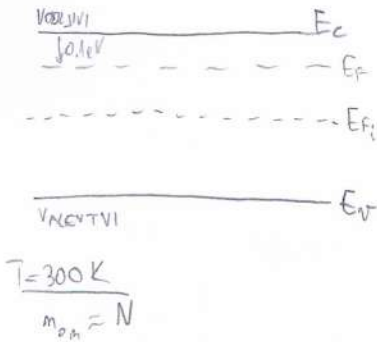 VODLJIVI E_C
0.1eV
E_F
E_Fi
E_V
VALENTNI
T=300K
≈ N